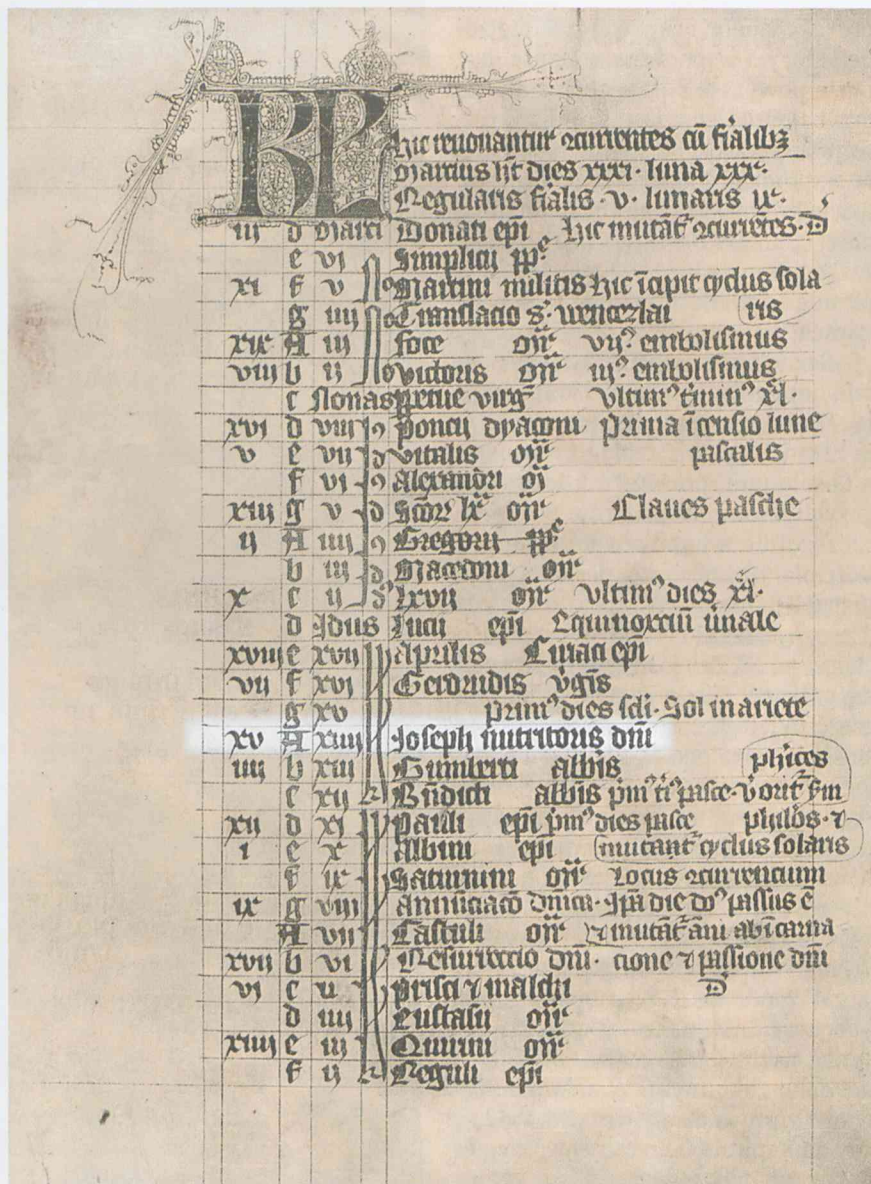 KL hic renouantur ɔcurrentes cū fialibꝫ
Marcius ht dies xxxi · luna xxx ·
Regularis fialis · v · lunaris ix ·
iii d Marci Donati epi hic mutāt ɔcurrētes · D
e vi Simplicii pp
xi f v No Martini militis hic īcipit cyclus sola
g iiii No Translacio s · wenczlai ris
xix A iii foce mr vii embolismus
viii b ii No victoris mr iii embolismus
c Nonas ppetue virg vltim t'mīn xl ·
xvi d viii Poncii dyaconi Prima īcensio lune
v e vii vitalis mr pascalis
f vi Alexandri m
xiii g v Scor xl mr Claues pasche
ii A iiii Gregorii pp
b iii Macedoni mr
x c ii lxvii mr vltim dies xl ·
d Idus lucii epi Equinoxciū v'nale
xviii e xvii Aprilis Ciriaci epi
vii f xvi Gerdrudis v'gis
g xv prim dies scli · Sol in ariete
xv A xiiii Joseph nutritoris dni
iiii b xiii Gumberti abbis phices
c xii Bndicti abbis pm t' pasce · v'
xii d xi Pauli epi pm dies pasce philos · ⁊
i e x Albini epi mutant cyclus solaris
f ix Saturnini mr Locus ɔcurrencium
ix g viii Annūciacō dnica · Ipa die do passus ē
A vii Castuli mr ⁊ mutāt āni ab īcarna
xvii b vi Resurreccio dni · cione ⁊ passione dni
vi c v Prisci ⁊ malchi D
d iiii Eustasii mr
xiiii e iii Quirini mr
f ii Reguli epi